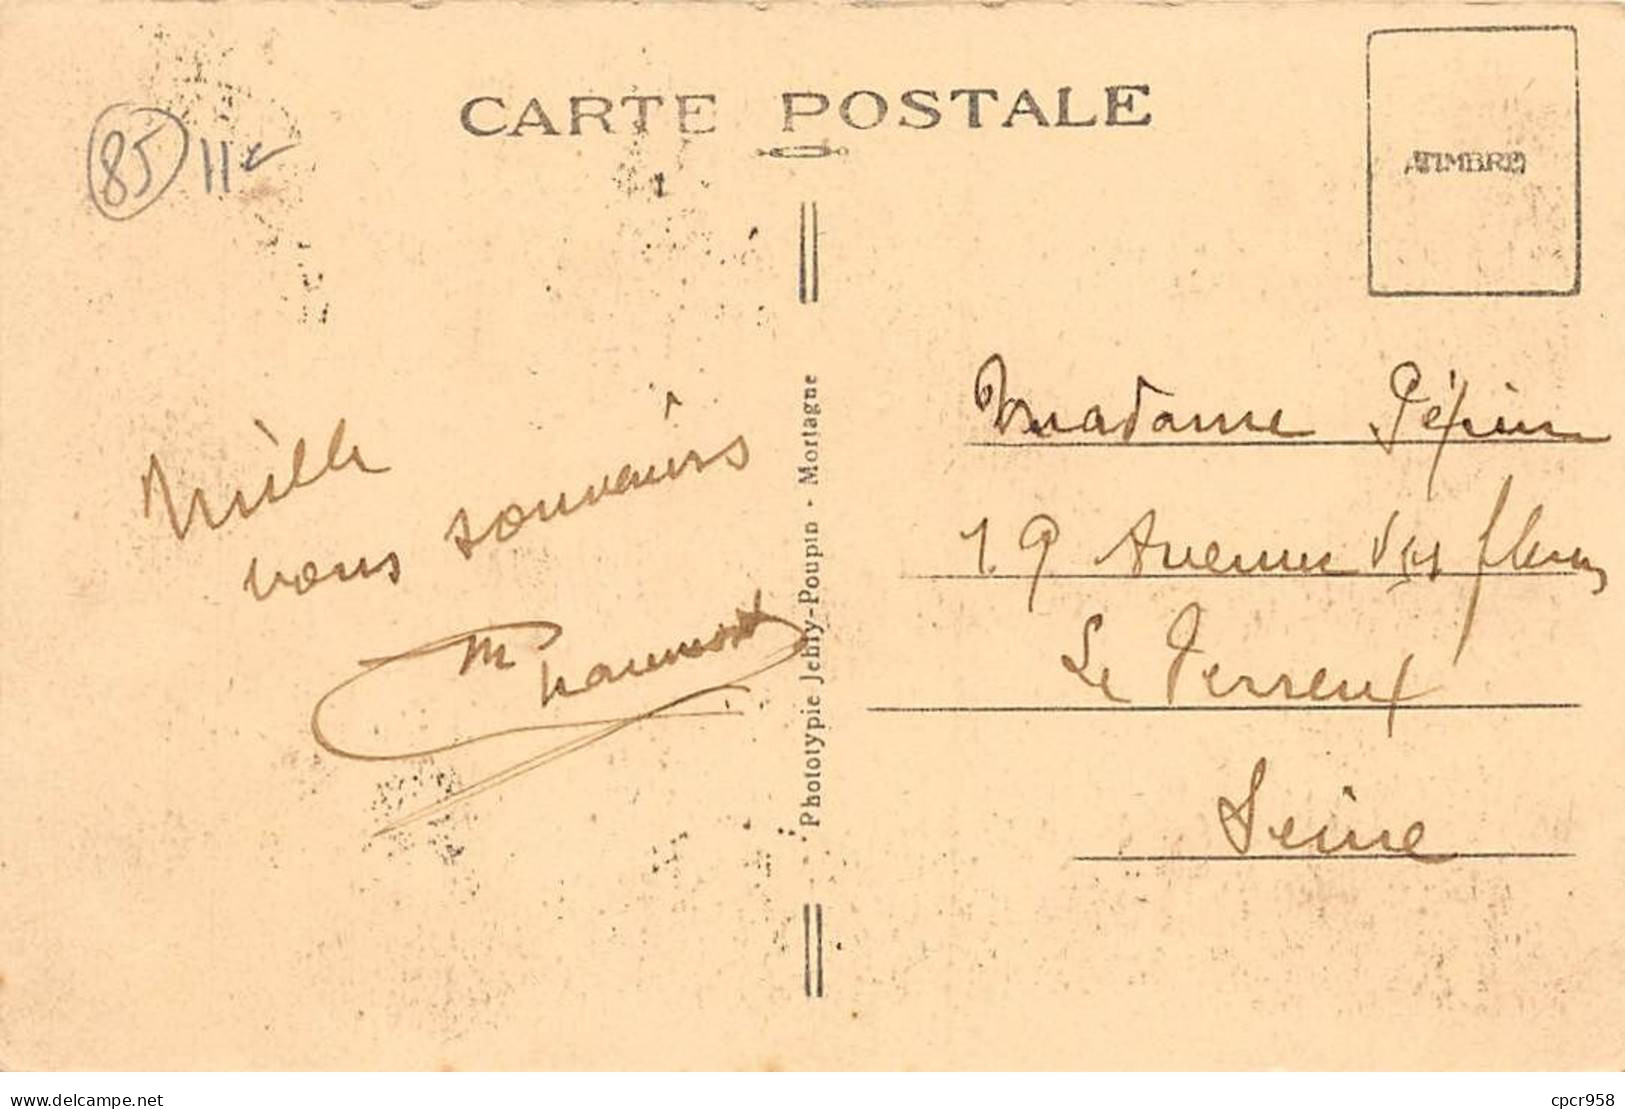 CARTE POSTALE
85 11€
TIMBRE
Mille
vous souvenirs
M Chaumont
Phototypie Jehly-Poupin - Mortagne
Madame Pépin
19 Avenue des fleurs
Le Perreux
Seine
www.delcampe.net
cpcr958